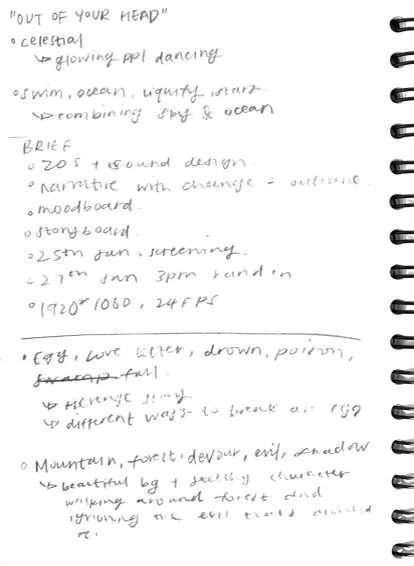 "OUT OF YOUR HEAD"
celestial
↳ glowing ppl dancing
swim, ocean, liquify, stars
↳ combining sky & ocean
BRIEF
20s + sound design.
narrative with change + outcome.
moodboard.
storyboard.
25th jan. screening.
27th jan 3pm hand in
1920*1080, 24FPS
Egg, Love letter, drown, poison,
fall.
↳ revenge story
↳ different ways to break an egg
Mountain, forest, devour, evil, shadow
↳ beautiful bg + sketchy character
walking around forest and
ignoring the evil around